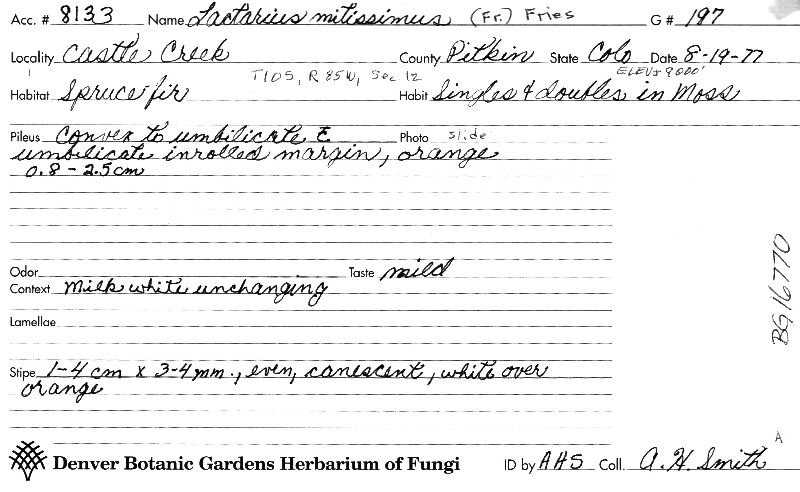 Acc. # 8133 Name Lactarius mitissimus (Fr.) Fries G # 197
Locality Castle Creek County Pitkin State Colo Date 8-19-77
T10S, R 85W, Sec 12 ELEV± 9000'
Habitat Spruce-fir Habit Singles & doubles in Moss
Pileus Convex to umbilicate c̄ Photo slide
umbilicate inrolled margin, orange
0.8 - 2.5cm
Odor Taste mild
Context Milk white unchanging
Lamellae
Stipe 1-4 cm x 3-4 mm., even, canescent, white over
orange
BG16770
A
Denver Botanic Gardens Herbarium of Fungi ID by AHS Coll. A. H. Smith